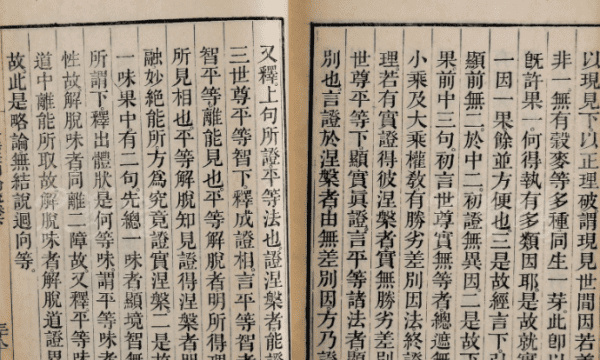 以現見下以正理破謂現見世間因若差
非一無有穀麥等多種同生一芽此卽以
旣許果一何得執有多類因耶是故就實
一因一果餘並方便也三是故經言下引
顯前無二於中二初證無異因二是故下
果前中三句初言世尊實無等者總遮
小乘及大乘權敎有勝劣差別因法終證
理若有實證得彼涅槃者實無勝劣差
世尊平等下顯實眞證言平等諸法者
別也言證於涅槃者由無差別因方乃證
又釋上句所證平等法也證涅槃者能
三世尊平等智下釋成證相言平等智者
智平等離能見也平等解脫者明所得理
所見相也平等解脫知見證得涅槃者
融妙絕能所方爲究竟證實涅槃二是故
一味果中有二句先總一味者顯境智
所謂下釋出體狀是何等味謂平等味
性故解脫味者同離二障故又釋平等味
道中離能所取故解脫味者解脫道證
故此是略論無結說迴向等